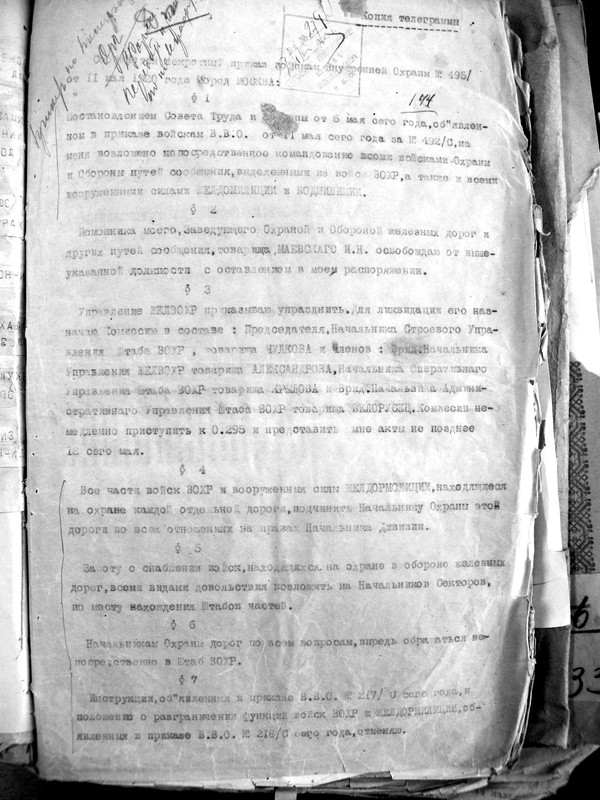 Копия телеграммы
секретный приказ войскам Внутренней Охраны № 495/
от 11 мая 1920 года Город МОСКВА:
144
§ 1
Постановлением Совета Труда и Обороны от 8 мая сего года,об"явлен-
ном в приказе войскам В.В.О. от 11 мая сего года за № 492/С,на
меня возложено непосредственное командование всеми войсками Охраны
и Обороны путей сообщения,выделенными из войск ВОХР,а также и всеми
вооруженными силами ЖЕЛДОМИЛИЦИИ и ВОДМИЛИЦИИ.
§ 2
Помощника моего,Заведующего Охраной и Обороной железных дорог и
других путей сообщения,товарища МАЕВСКАГО И.Н. освобождаю от выше-
указанной должности с оставлением в моем распоряжении.
§ 3
Управление ЖЕЛВОХР приказываю упразднить.Для ликвидации его наз-
начаю Комиссию в составе : Председателя,Начальника Строевого Упра-
вления Штаба ВОХР , товарища ЧУДКОВА и членов : Врид.Начальника
Управления ЖЕЛВОХР товарища АЛЕКСАНДРОВА,Начальника Оперативнаго
Управления Штаба ВОХР товарища КРЫЛОВА и Врид.Начальника Админи-
стративнаго Управления Штаба ВОХР товарища БЕЛОРУСЕЦ.Комиссии не-
медленно приступить к 0.295 и представить мне акты не позднее
12 сего мая.
§ 4
Все части войск ВОХР и вооруженныя силы ЖЕЛДОРМИЛИЦИИ,находящиеся
на охране каждой отдельной дороги,подчинить Начальнику Охраны этой
дороги во всех отношениях на правах Начальника Дивизии.
§ 5
Заботу о снабжении войск,находящихся на охране и обороне железных
дорог,всеми видами довольствия возложить на Начальников Секторов,
по месту нахождения Штабов частей.
§ 6
Начальникам Охраны дорог по всем вопросам,впредь обращаться не-
посредственно в Штаб ВОХР.
§ 7
Инструкции,об"явленныя в приказе В.В.О. № 217/ С сего года,и
положение о разграничении функций войск ВОХР и ЖЕЛДОРМИЛИЦИИ,об-
явленныя в приказе В.В.О. № 218/С сего года,отменяю.